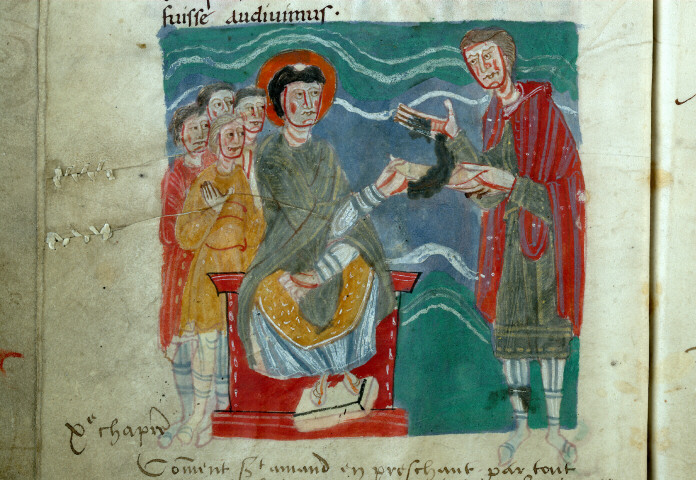 fuisse audivimus.
Xe chapire
Coment St amand en preschant par tout